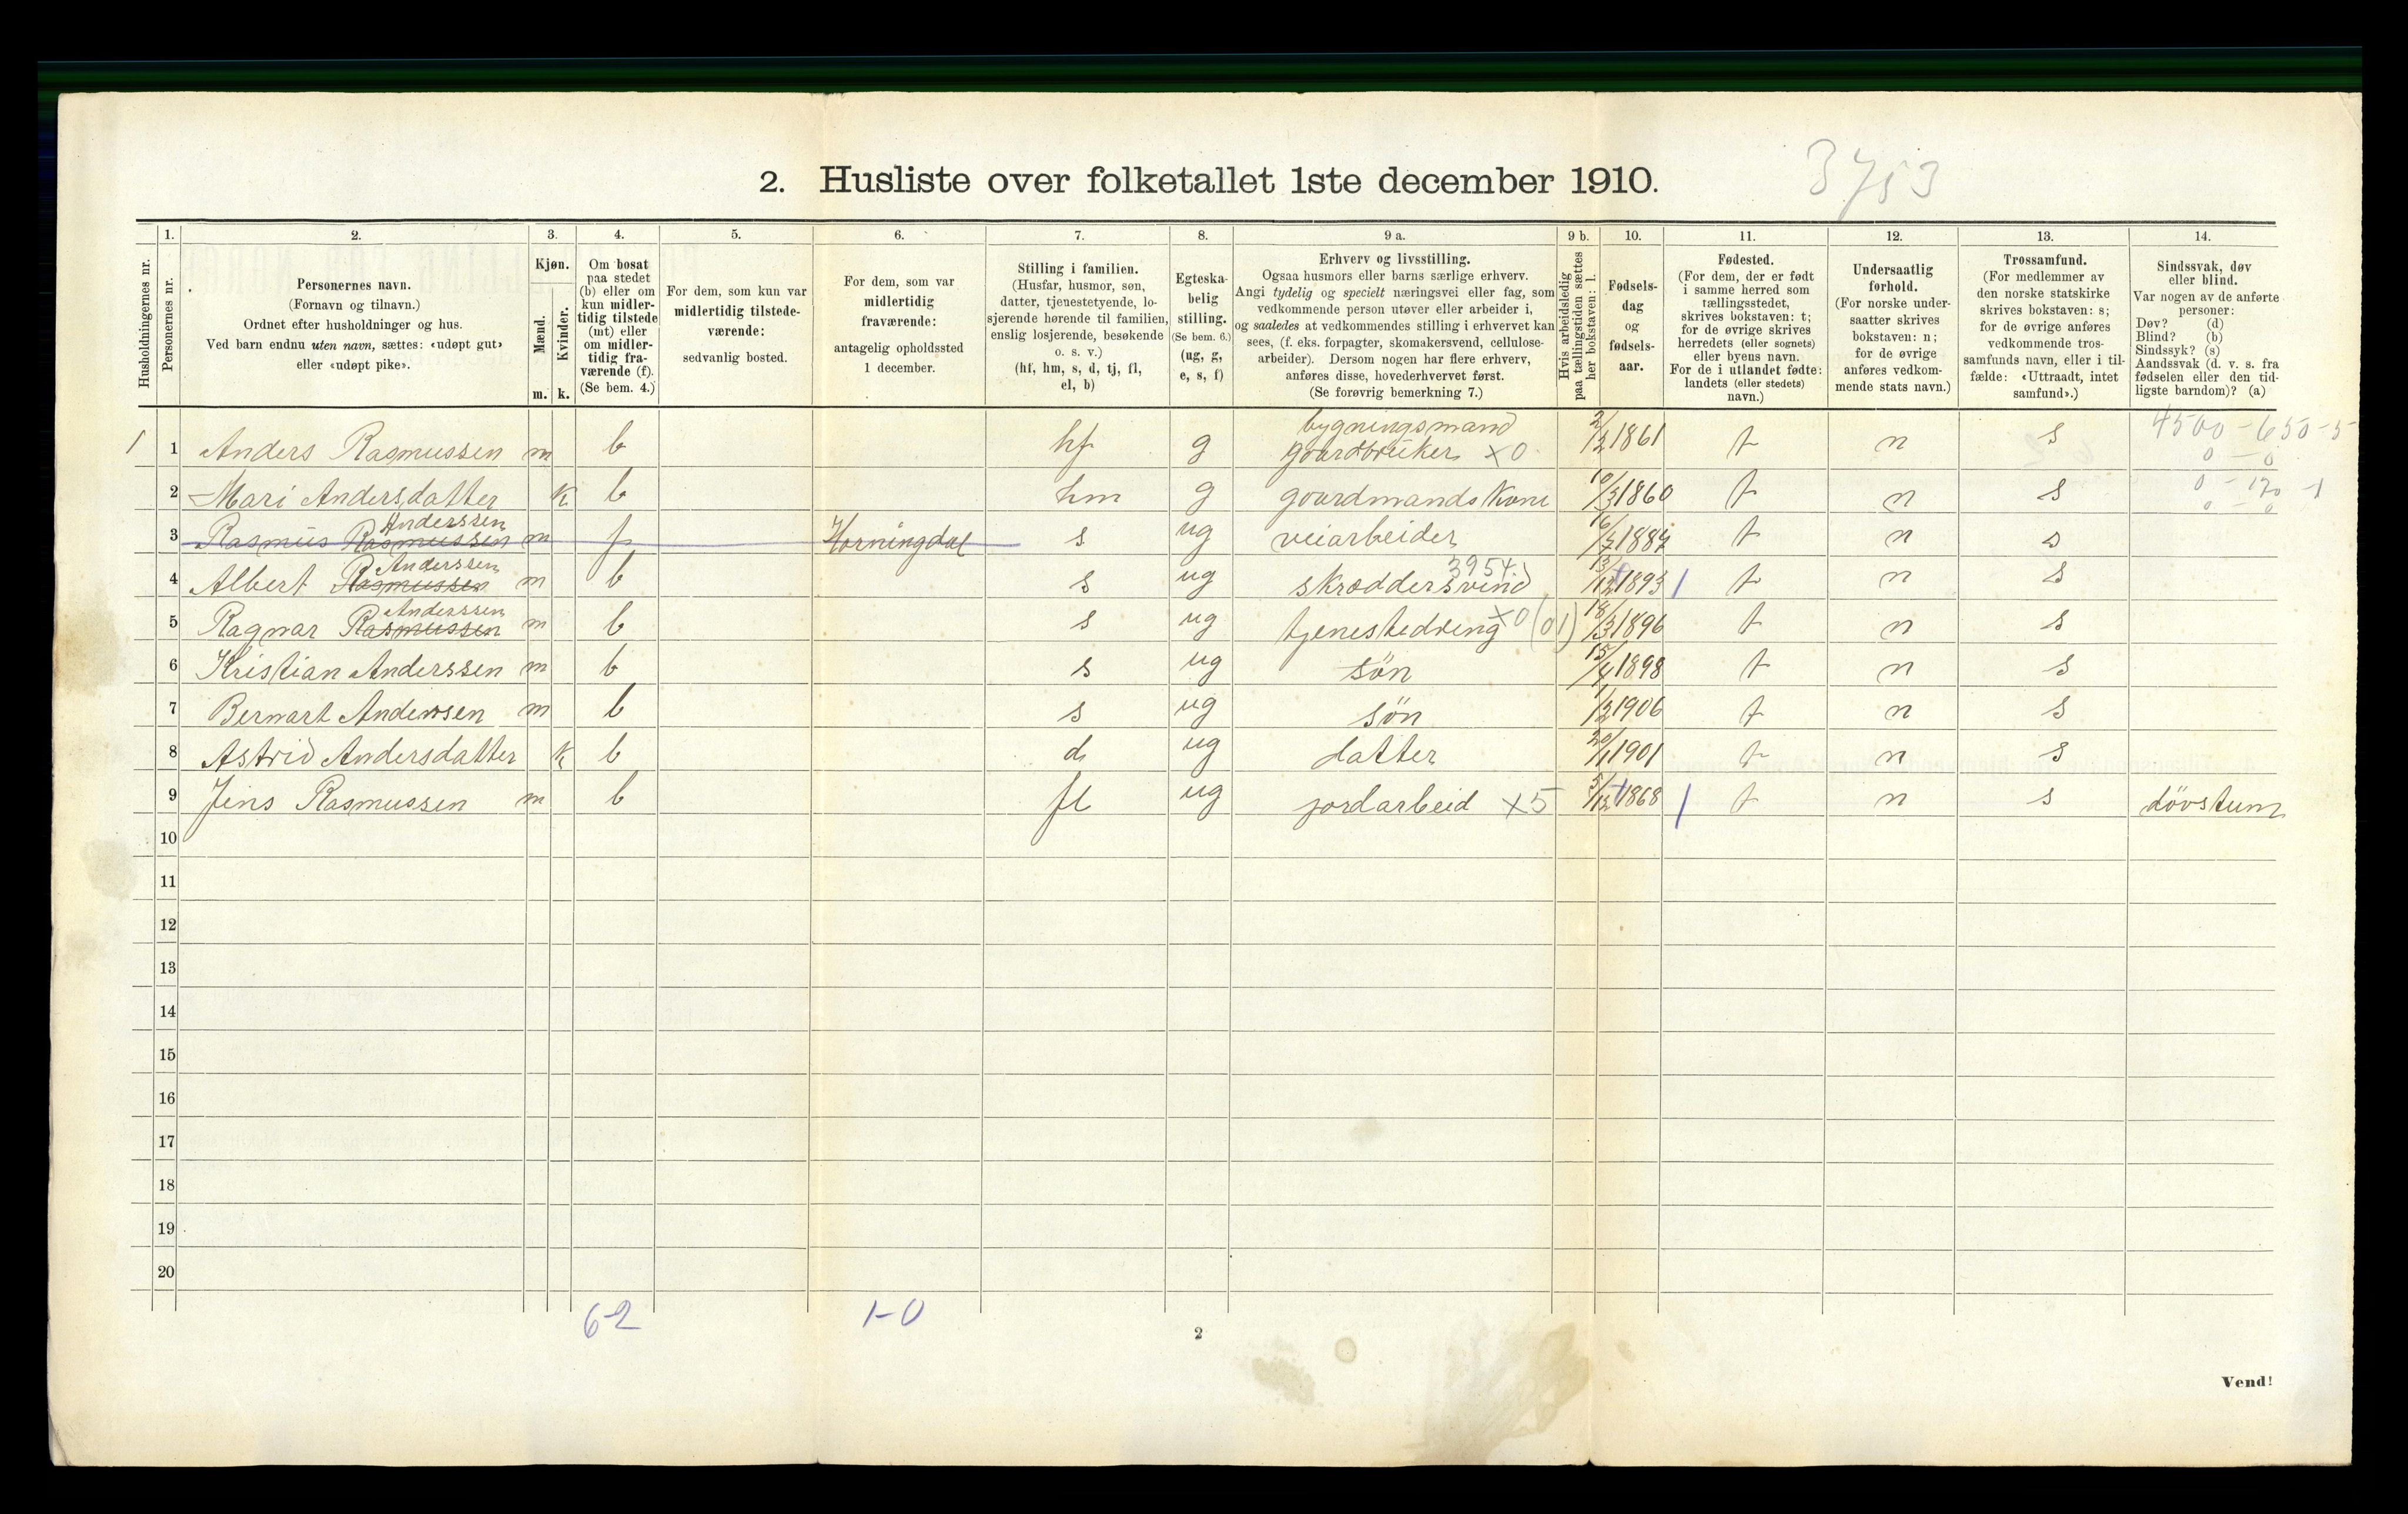 3753
2. Husliste over folketallet 1ste december 1910.
1. 2. 3. 4. 5. 6. 7. 8. 9 a. 9 b. 10. 11. 12. 13. 14.
Husholdningernes nr.
Personernes nr.
Personernes navn.
(Fornavn og tilnavn.)
Ordnet efter husholdninger og hus.
Ved barn endnu uten navn, sættes: «udøpt gut»
eller «udøpt pike».
Kjøn.
Mænd.
Kvinder.
m. k.
Om bosat
paa stedet
(b) eller om
kun midler-
tidig tilstede
(mt) eller
om midler-
tidig fra-
værende (f).
(Se bem. 4.)
For dem, som kun var
midlertidig tilstede-
værende:
sedvanlig bosted.
For dem, som var
midlertidig
fraværende:
antagelig opholdssted
1 december.
Stilling i familien.
(Husfar, husmor, søn,
datter, tjenestetyende, lo-
sjerende hørende til familien,
enslig losjerende, besøkende
o. s. v.)
(hf, hm, s, d, tj, fl,
el, b)
Egteska-
belig
stilling.
(Se bem. 6.)
(ug, g,
e, s, f)
Erhverv og livsstilling.
Ogsaa husmors eller barns særlige erhverv.
Angi tydelig og specielt næringsvei eller fag, som
vedkommende person utøver eller arbeider i,
og saaledes at vedkommendes stilling i erhvervet kan
sees, (f. eks. forpagter, skomakersvend, cellulose-
arbeider). Dersom nogen har flere erhverv,
anføres disse, hovederhvervet først.
(Se forøvrig bemerkning 7.)
Hvis arbeidsledig
paa tællingstiden sættes
her bokstaven: l.
Fødsels-
dag
og
fødsels-
aar.
Fødested.
(For dem, der er født
i samme herred som
tællingsstedet,
skrives bokstaven: t;
for de øvrige skrives
herredets (eller sognets)
eller byens navn.
For de i utlandet fødte:
landets (eller stedets)
navn.)
Undersaatlig
forhold.
(For norske under-
saatter skrives
bokstaven: n;
for de øvrige
anføres vedkom-
mende stats navn.)
Trossamfund.
(For medlemmer av
den norske statskirke
skrives bokstaven: s;
for de øvrige anføres
vedkommende tros-
samfunds navn, eller i til-
fælde: «Uttraadt, intet
samfund».)
Sindssvak, døv
eller blind.
Var nogen av de anførte
personer:
Døv? (d)
Blind? (b)
Sindssyk? (s)
Aandssvak (d. v. s. fra
fødselen eller den tid-
ligste barndom)? (a)
bygningsmand 4500 - 650 - 5
1 1 Anders Rasmussen m b hf g gaardbruker x0 2/2 1861 t n s 0 - 0
2 Mari Andersdatter k b hm g gaardmands Kone 10/3 1860 t n s 0 - 170 -1
0 - 0
Anderssen
3 Rasmus Rasmussen m f Horningdal s ug veiarbeider 16/7 1887 t n s
Anderssen 3954
4 Albert Rasmussen m b s ug skræddersvend 13/12 1893 t n s
Anderssen
5 Ragnar Rasmussen m b s ug tjenestedreng x0 (01) 18/3 1896 t n s
6 Kristian Anderssen m b s ug søn 15/4 1898 t n s
7 Bernart Anderssen m b s ug søn 1/2 1906 t n s
8 Astrid Andersdatter k b d ug datter 20/1 1901 t n s
9 Jens Rasmussen m b fl ug jordarbeid x5 5/12 1868 t n s dövstum
10
11
12
13
14
15
16
17
18
19
20
6-2 1-0
2
Vend!